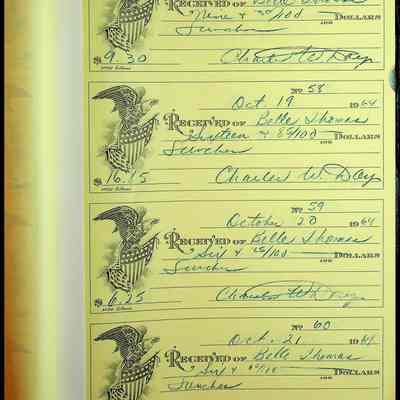 RECEIVED OF Belle Thomas
Nine & 30/100 DOLLARS
Lunches
$9.30 Charles W. Day
No 58
Oct. 19 1964
RECEIVED OF Belle Thomas
Sixteen & 85/100 DOLLARS
Lunches
$16.15 Charles W. Day
No 59
October 20 1964
RECEIVED OF Belle Thomas
Six & 25/100 DOLLARS
Lunches
$6.25 Charles W. Day
No 60
Oct. 21 1964
RECEIVED OF Belle Thomas
Six & DOLLARS
Lunches